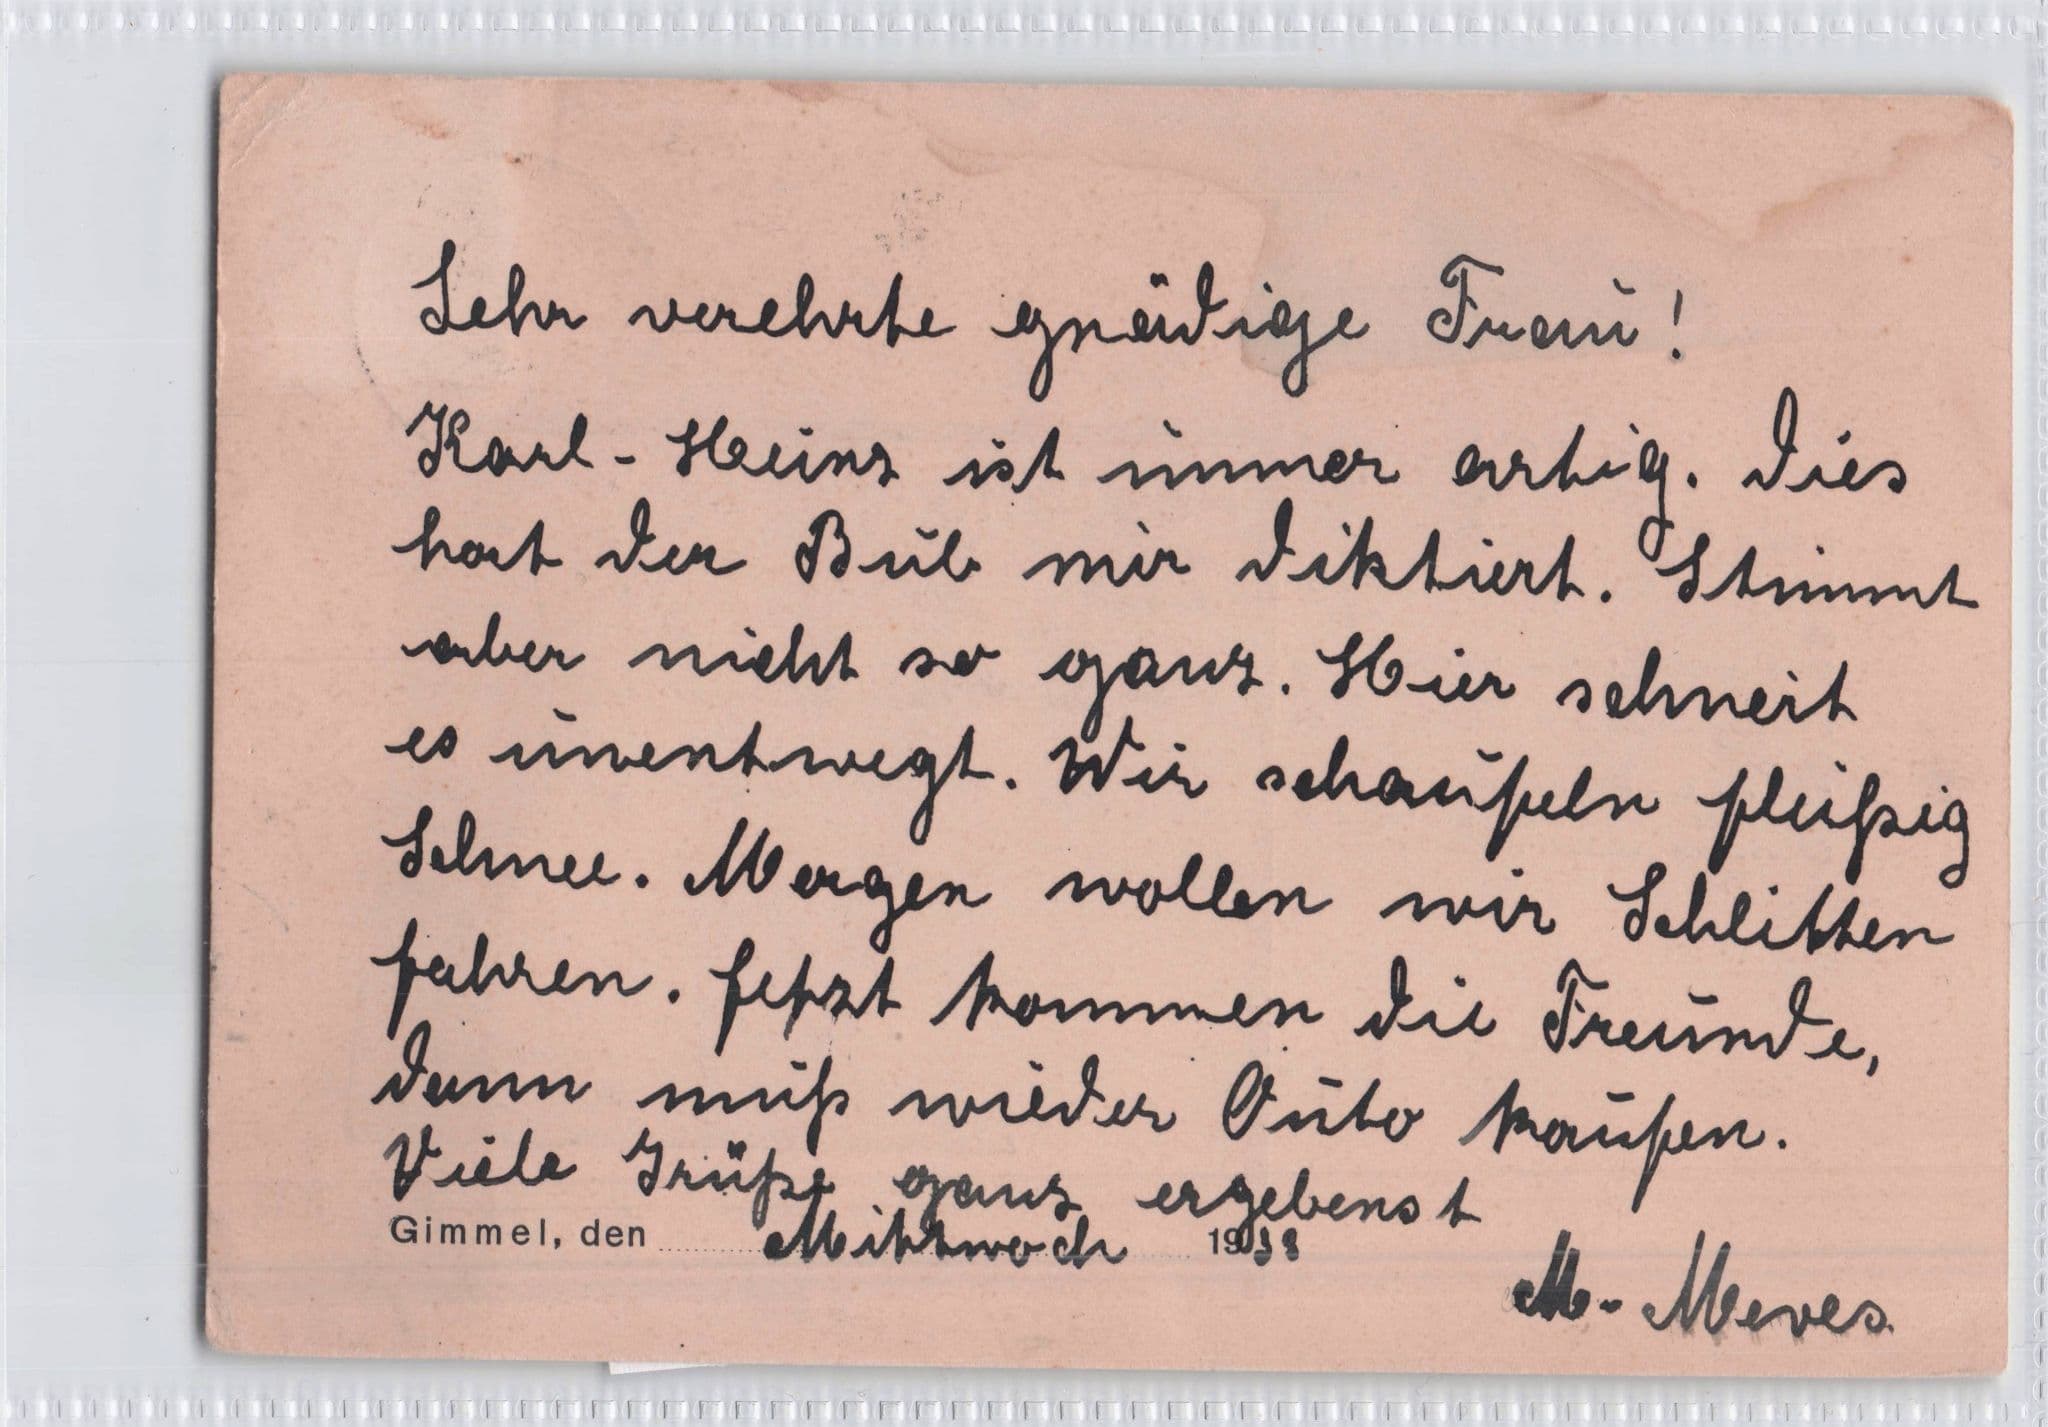 Sehr verehrte gnädige Frau!
Karl-Heinz ist immer artig. Dies
hat der Bub mir diktiert. Stimmt
aber nicht so ganz. Hier schneit
es unentwegt. Wir schaufeln fleißig
Schnee. Morgen wollen wir Schlitten
fahren. Jetzt kommen die Freunde,
dann muß wieder Auto kaufen.
Viele Grüße ganz ergebenst
Gimmel, den Mittwoch 1938
M. Meves